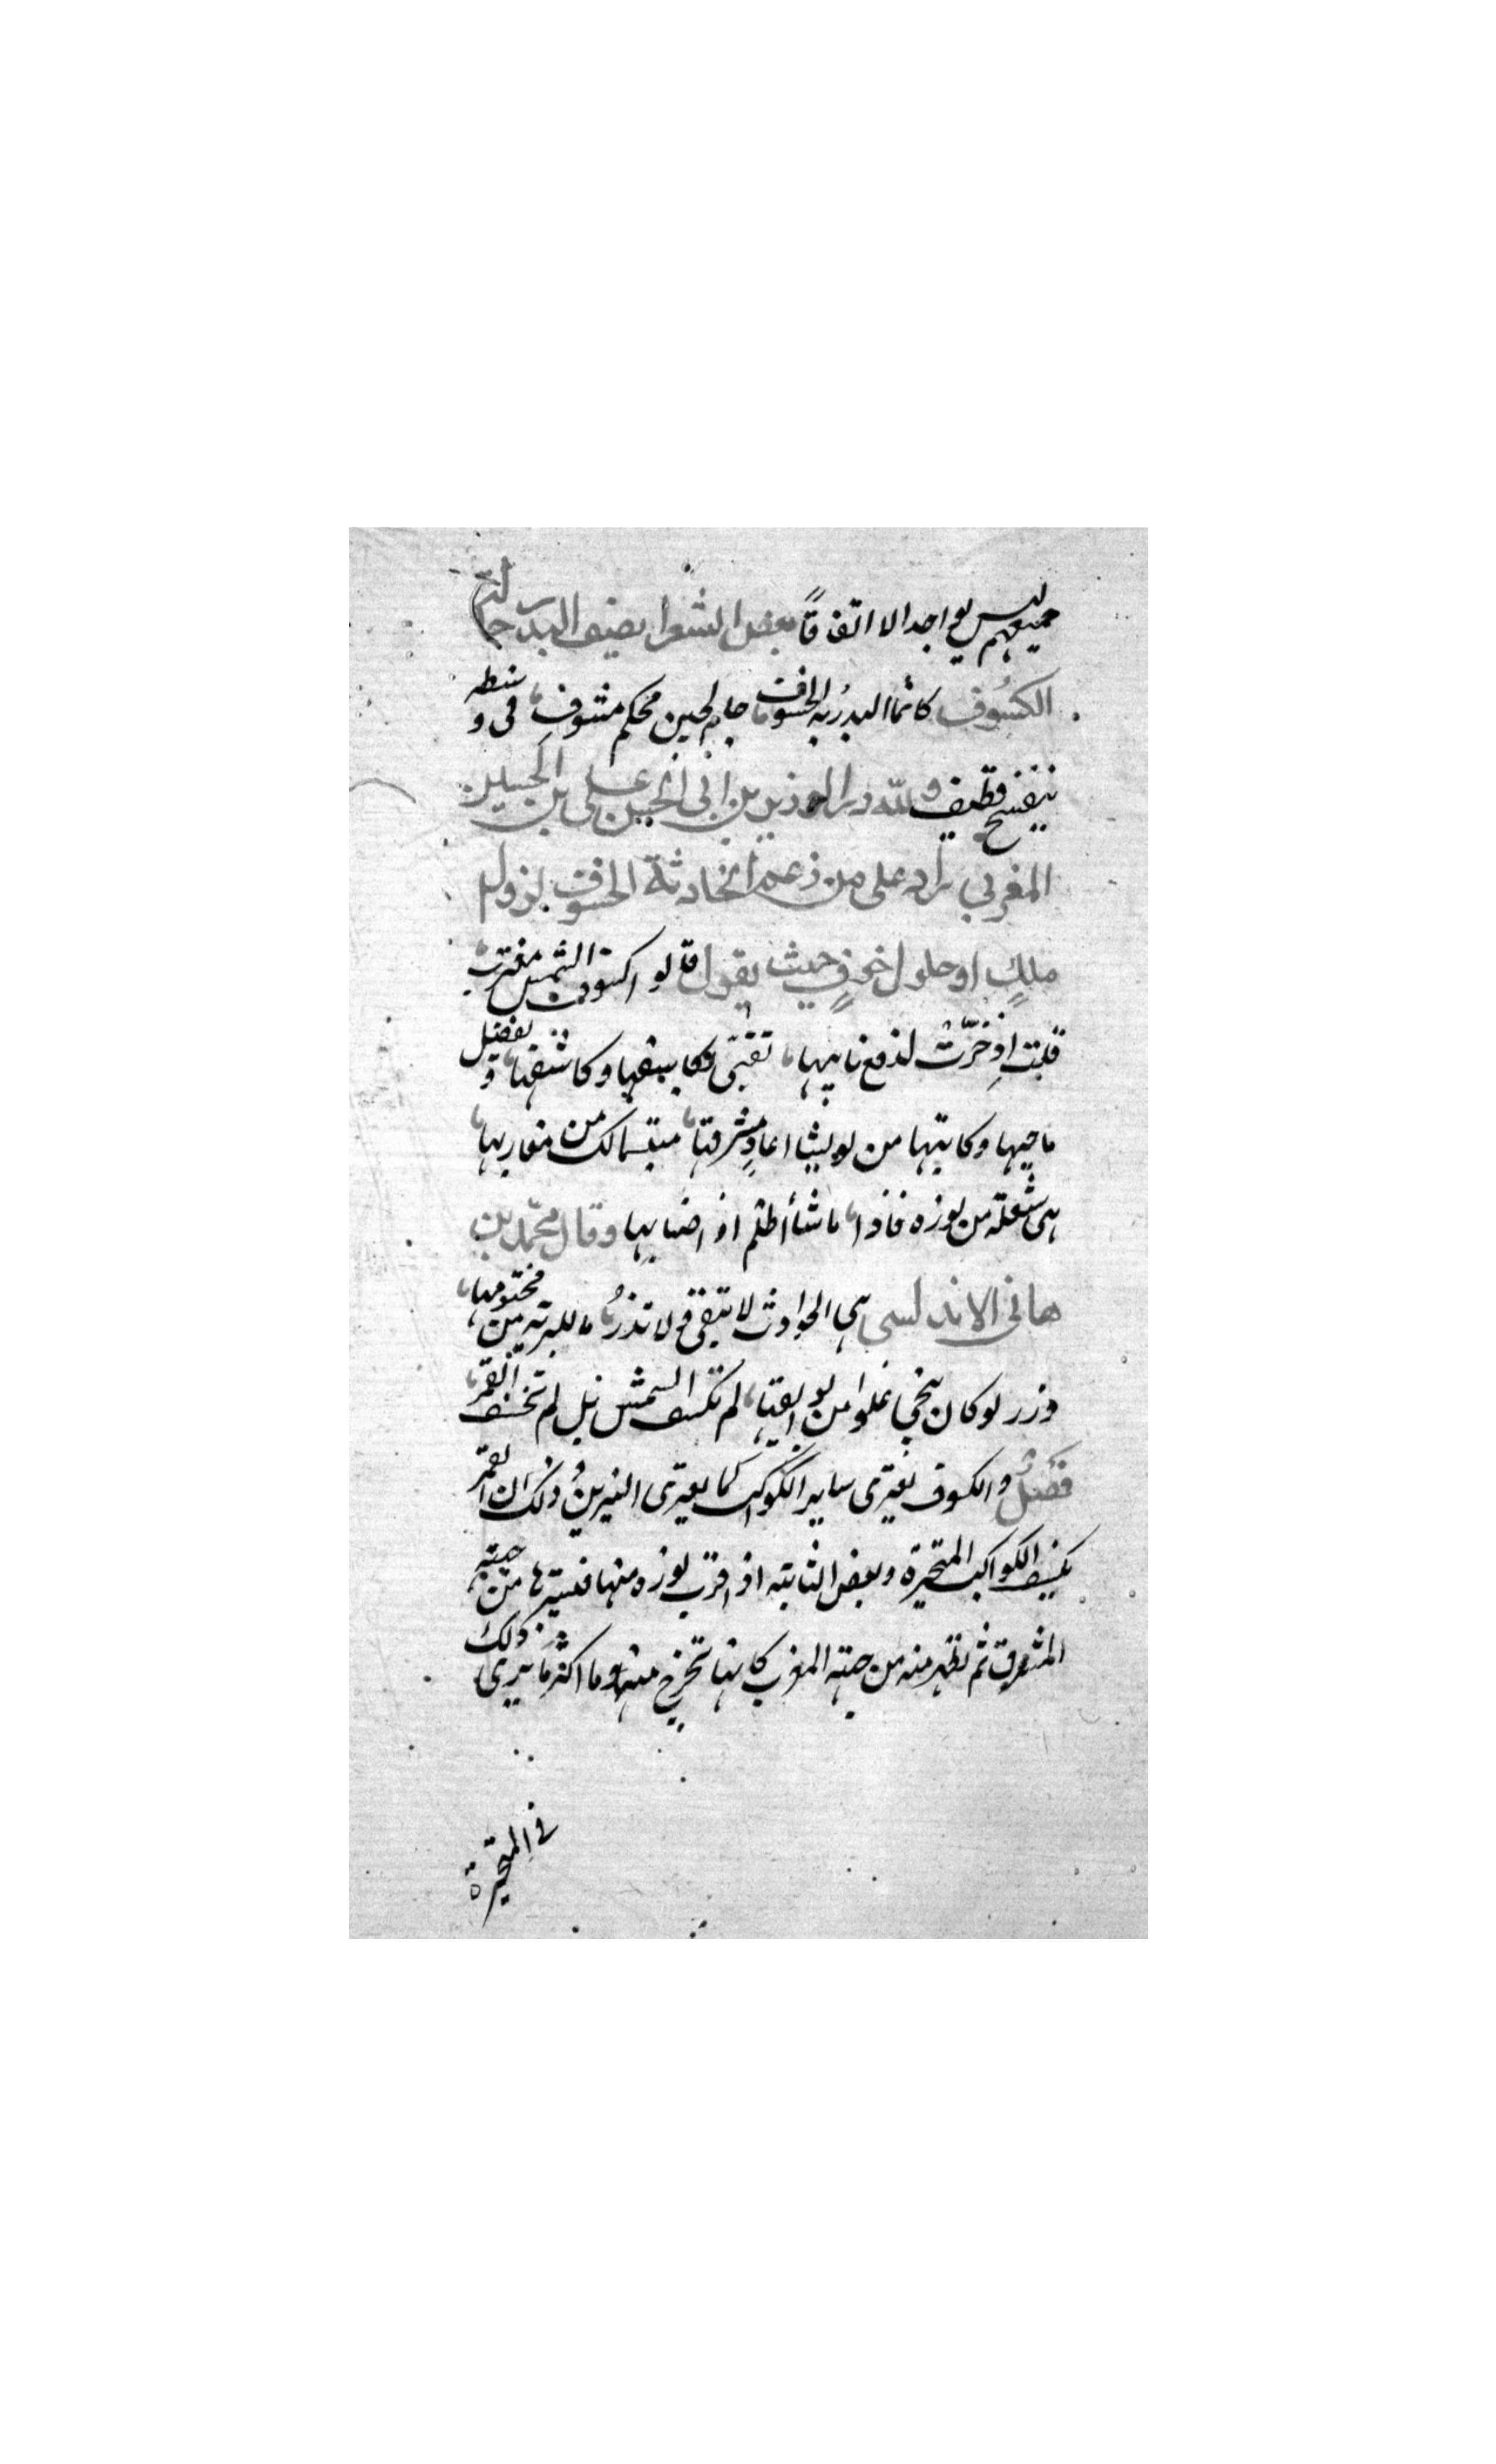 جميعهم ليس يواجد الا اتفاقاً بعض الشعرا يصف البدر حالة
الكسُوف كانما البدرُ به الخسوف جام لجين محكم مشوف فى وسطه
بنفسج قطيف ولله در الوزير بن ابى الحسين على بن الحسين
المغربي راد على من زعم الحادثة الخسوف لزول
ملكٍ او حلول خوفٍ حيث يقول قالو اكسوف الشمس مقترب
قلت اذخرّت لدفع نايبها وكاسفها وبفضل
ماحيها وكاتبها من لو يشا اعاد مشرقها من مغاربها
هى شعلة من نوره فاذا ما شأ اظلم اذ اضابها وقال محمّد بن
هانى الاندلسى هى الحوادث لا تبقى ولا تذرُ ما للبرية من محتومها
وزر لو كان ينجي علوا من بوايقها لم تكسف الشمس بل لم تخسف القمر
فصْلٌ والكسوف يعترى ساير الكواكب كما يعترى النيرين وذلك ان القمر
يكسف الكواكب المتحيرة وبعض الثابته اذ اقرب نوره منها فيسترها من جهة
المشرق ثم تظهر منه من جهة المغرب كانها تخرج منه وما اكثر ما يرى ذلك
فى المتحيرة